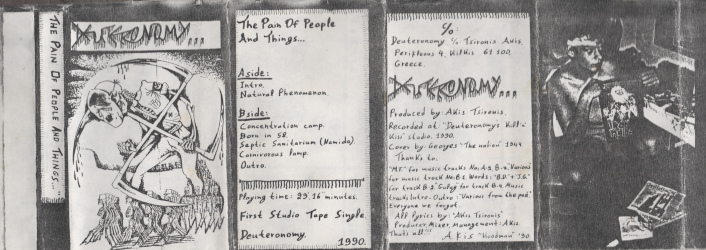 THE PAIN OF PEOPLE AND THINGS..."
DEUTERONOMY...
The Pain Of People
And Things...
Aside:
Intro.
Natural Phenomenon.
Bside:
Concentration camp.
Born in 58.
Septic Sanitarium
Carnivorous Pamp.
Outro.
Playing time: 29,16 minutes.
First Studio Tape Single
Deuteronomy.
1990.
%:
Deuteronomy % Tsironis Akis
Perifereos 4, Kilkis 61 100,
Greece.
DEUTERONOMY...
Produced by: Akis Tsironis.
Recorded at "Deuteronomy's Kill-
Kiss" studio. 1990.
Cover by: Georges "The nation" 1944
Thanks to.
"M.F." for music tracks No. A.2 B.4. Various
for music track No. B.2 Words: "B.D" + "J.G."
for track B.2 for track B.4 Music
tracks Intro. Outro: Various from the past
Everyone we forgot.
All lyrics by: "Akis Tsironis"
Producer, Mixer, Management: Akis
Thats all!!
Akis "Hoodman" '90